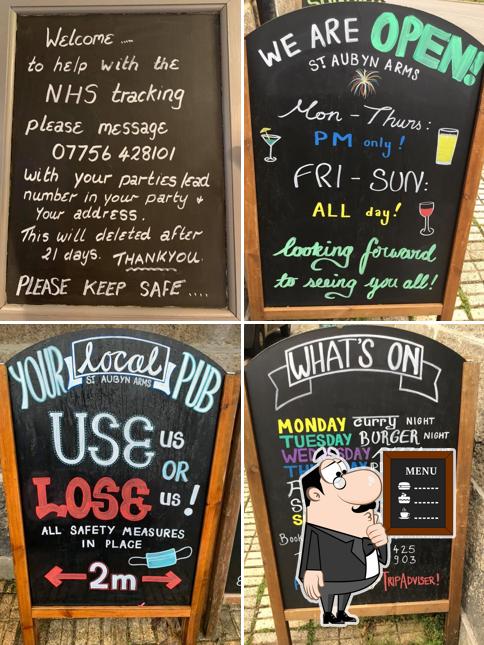 Welcome ....
to help with the
NHS tracking
please message
07756 428101
with your parties lead
number in your party +
your address.
This will deleted after
21 days. THANKYOU.
PLEASE KEEP SAFE ....
WE ARE OPEN!
ST AUBYN ARMS
Mon - Thurs:
PM only!
FRI - SUN:
ALL day!
looking forward
to seeing you all!
YOUR local PUB
ST AUBYN ARMS
USE us
OR
LOSE us!
ALL SAFETY MEASURES
IN PLACE
2m
WHAT'S ON
MONDAY curry NIGHT
TUESDAY BURGER NIGHT
WEDNESDAY
MENU
Book
425
903
TRIPADVISER!